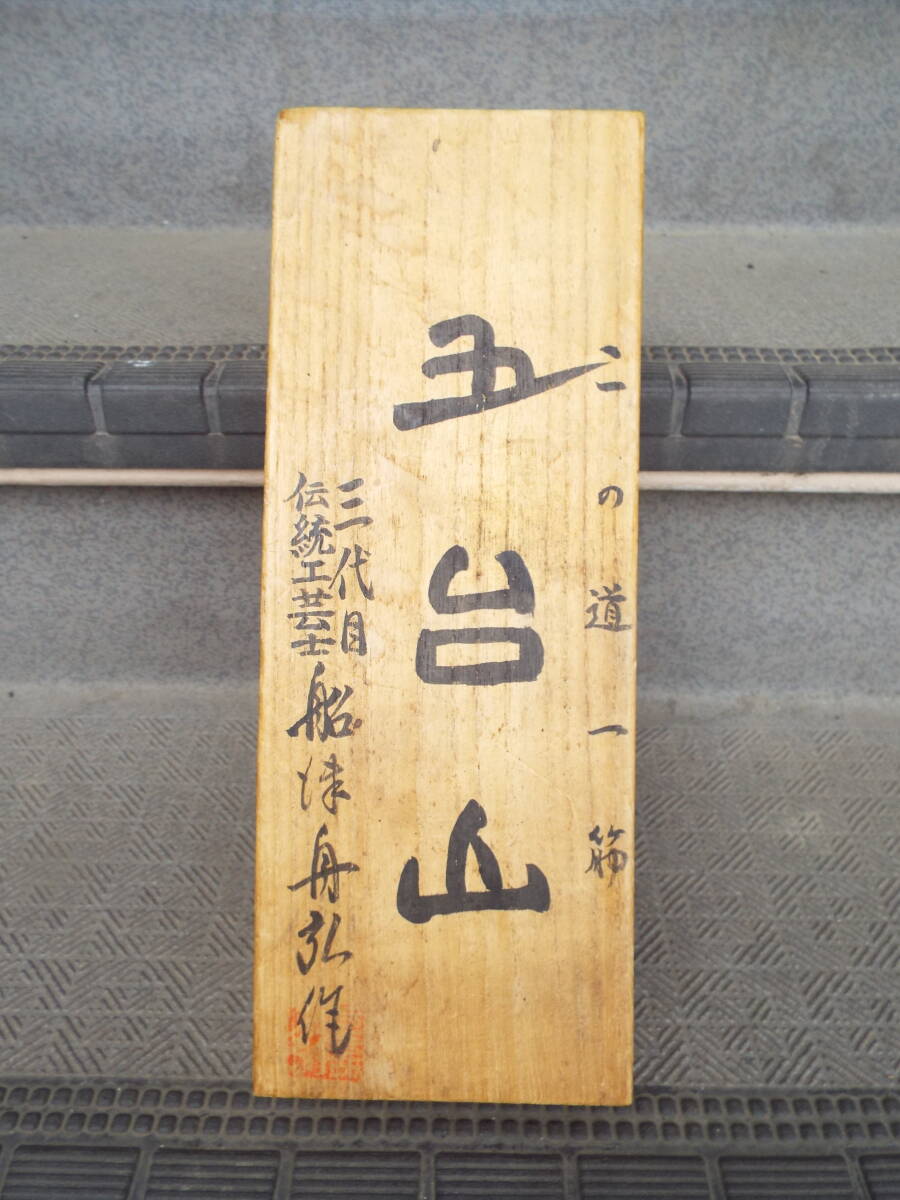 この道一筋
五台山
三代目
伝統工芸士
船津舟弘作